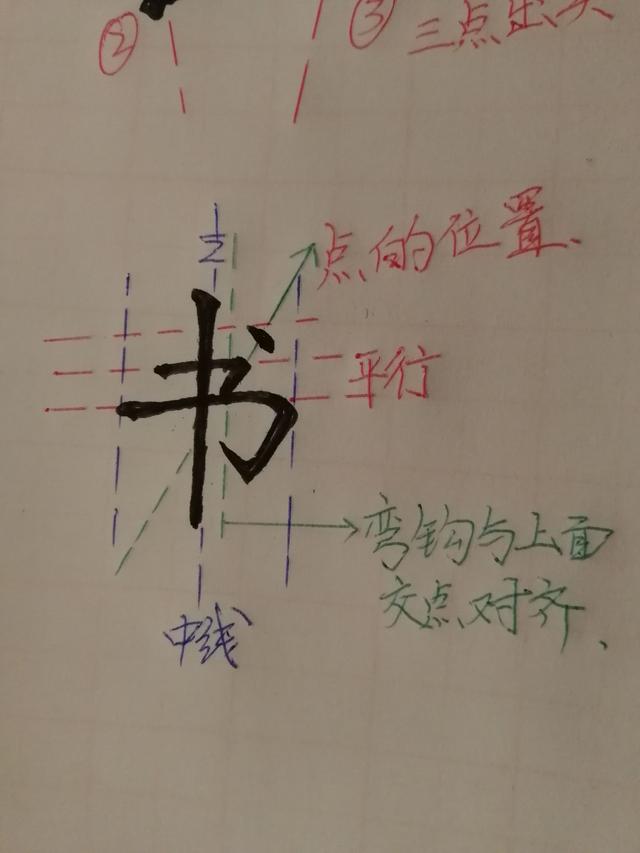 ② ③ 三点出头
1/2
点的位置.
书
平行
弯钩与上面
交点对齐、
中线